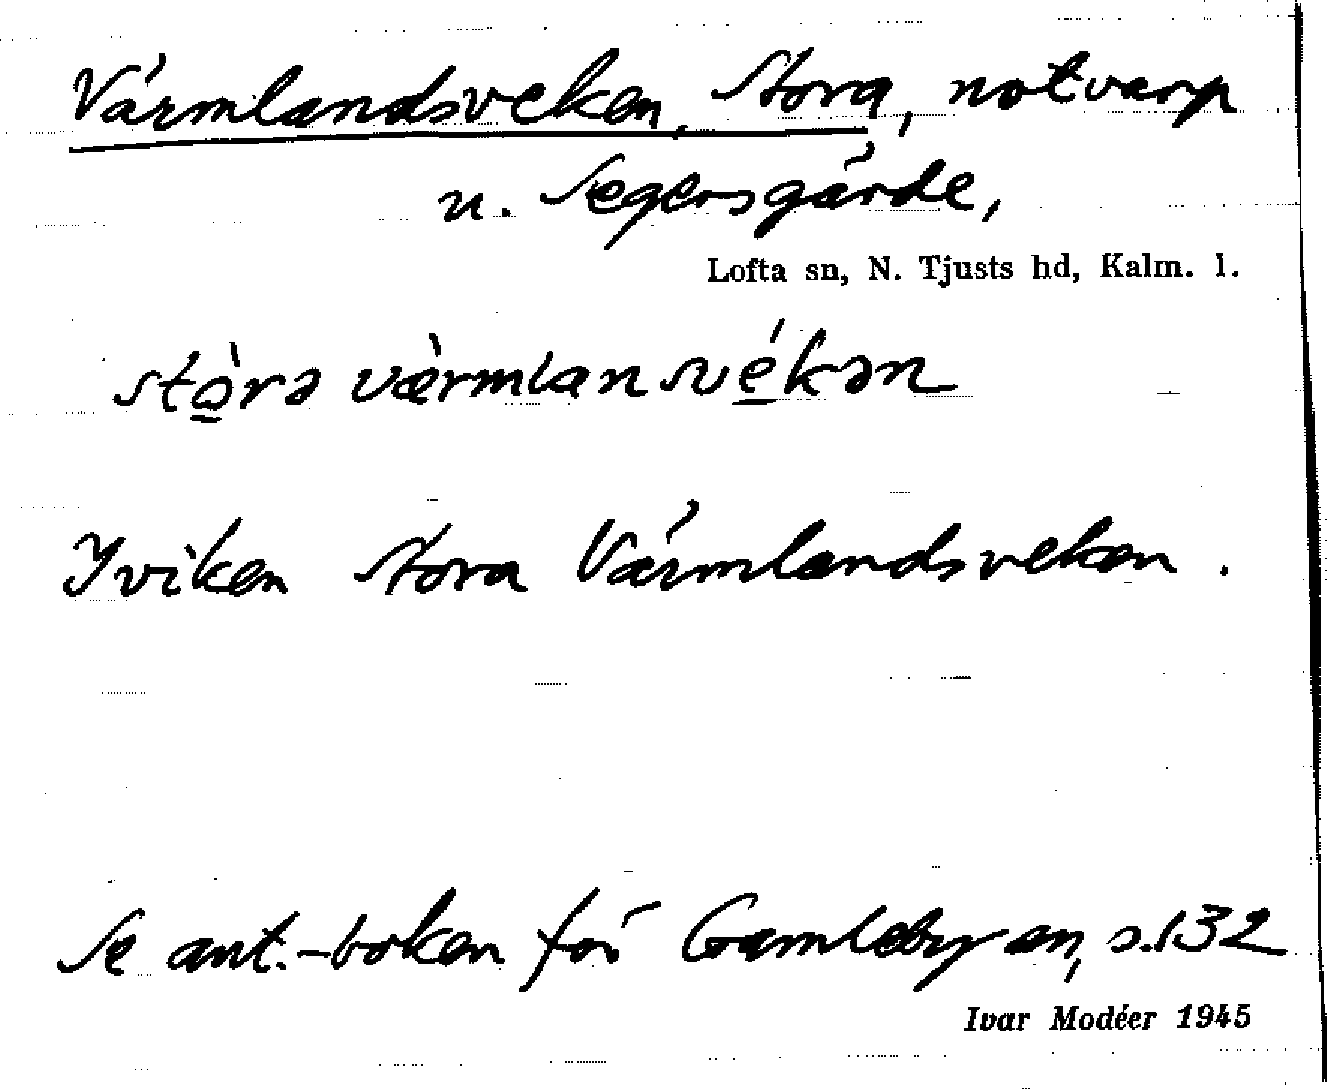 Värmlandsveken, Stora, notvarp
u. Segersgärde,
Lofta sn, N. Tjusts hd, Kalm. l.
stò̲rə væ̀rmlansvé̲kən
I viken Stora Värmlandsveken.
Se ant.-boken för Gamleby sn, s.132
Ivar Modéer 1945